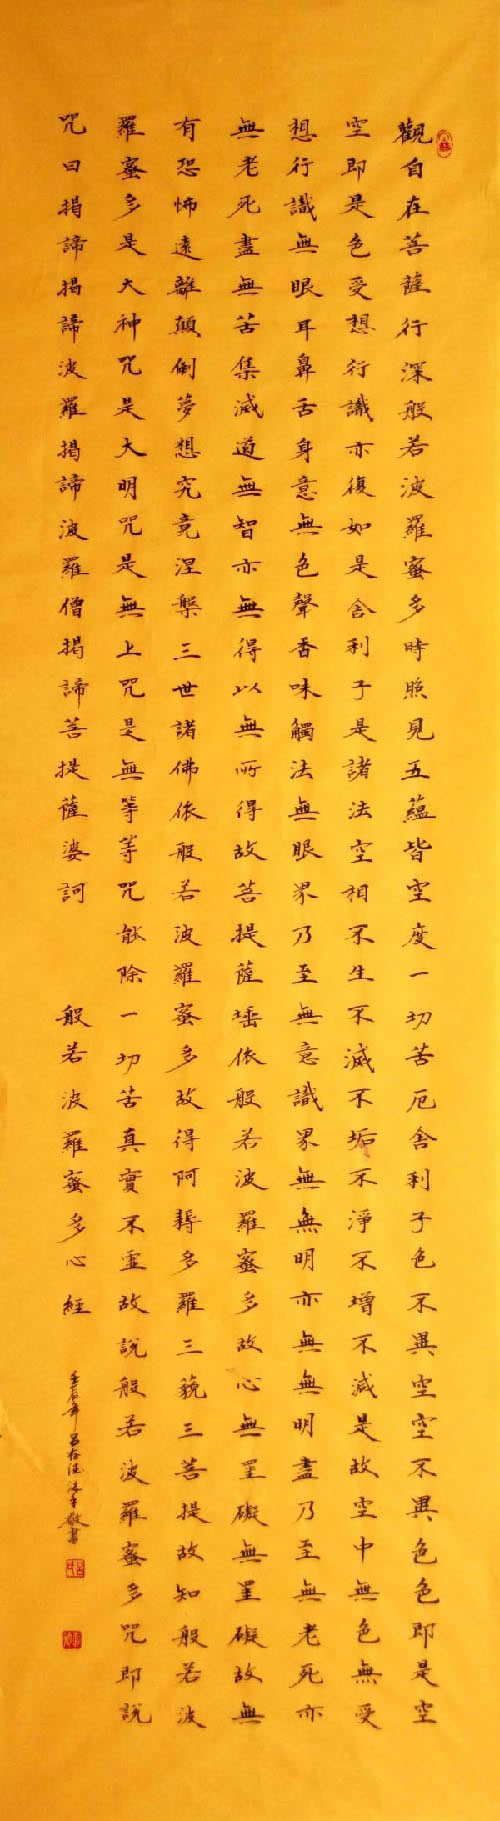 觀自在菩薩行深般若波羅蜜多時照見五蘊皆空度一切苦厄舍利子色不異空空不異色色即是空
空即是色受想行識亦復如是舍利子是諸法空相不生不滅不垢不淨不增不減是故空中無色無受
想行識無眼耳鼻舌身意無色聲香味觸法無眼界乃至無意識界無無明亦無無明盡乃至無老死亦
無老死盡無苦集滅道無智亦無得以無所得故菩提薩埵依般若波羅蜜多故心無罣礙無罣礙故無
有恐怖遠離顛倒夢想究竟涅槃三世諸佛依般若波羅蜜多故得阿耨多羅三藐三菩提故知般若波
羅蜜多是大神咒是大明咒是無上咒是無等等咒能除一切苦真實不虛故說般若波羅蜜多咒即說
咒曰揭諦揭諦波羅揭諦波羅僧揭諦菩提薩婆訶 般若波羅蜜多心經
壬辰年 沐手敬書